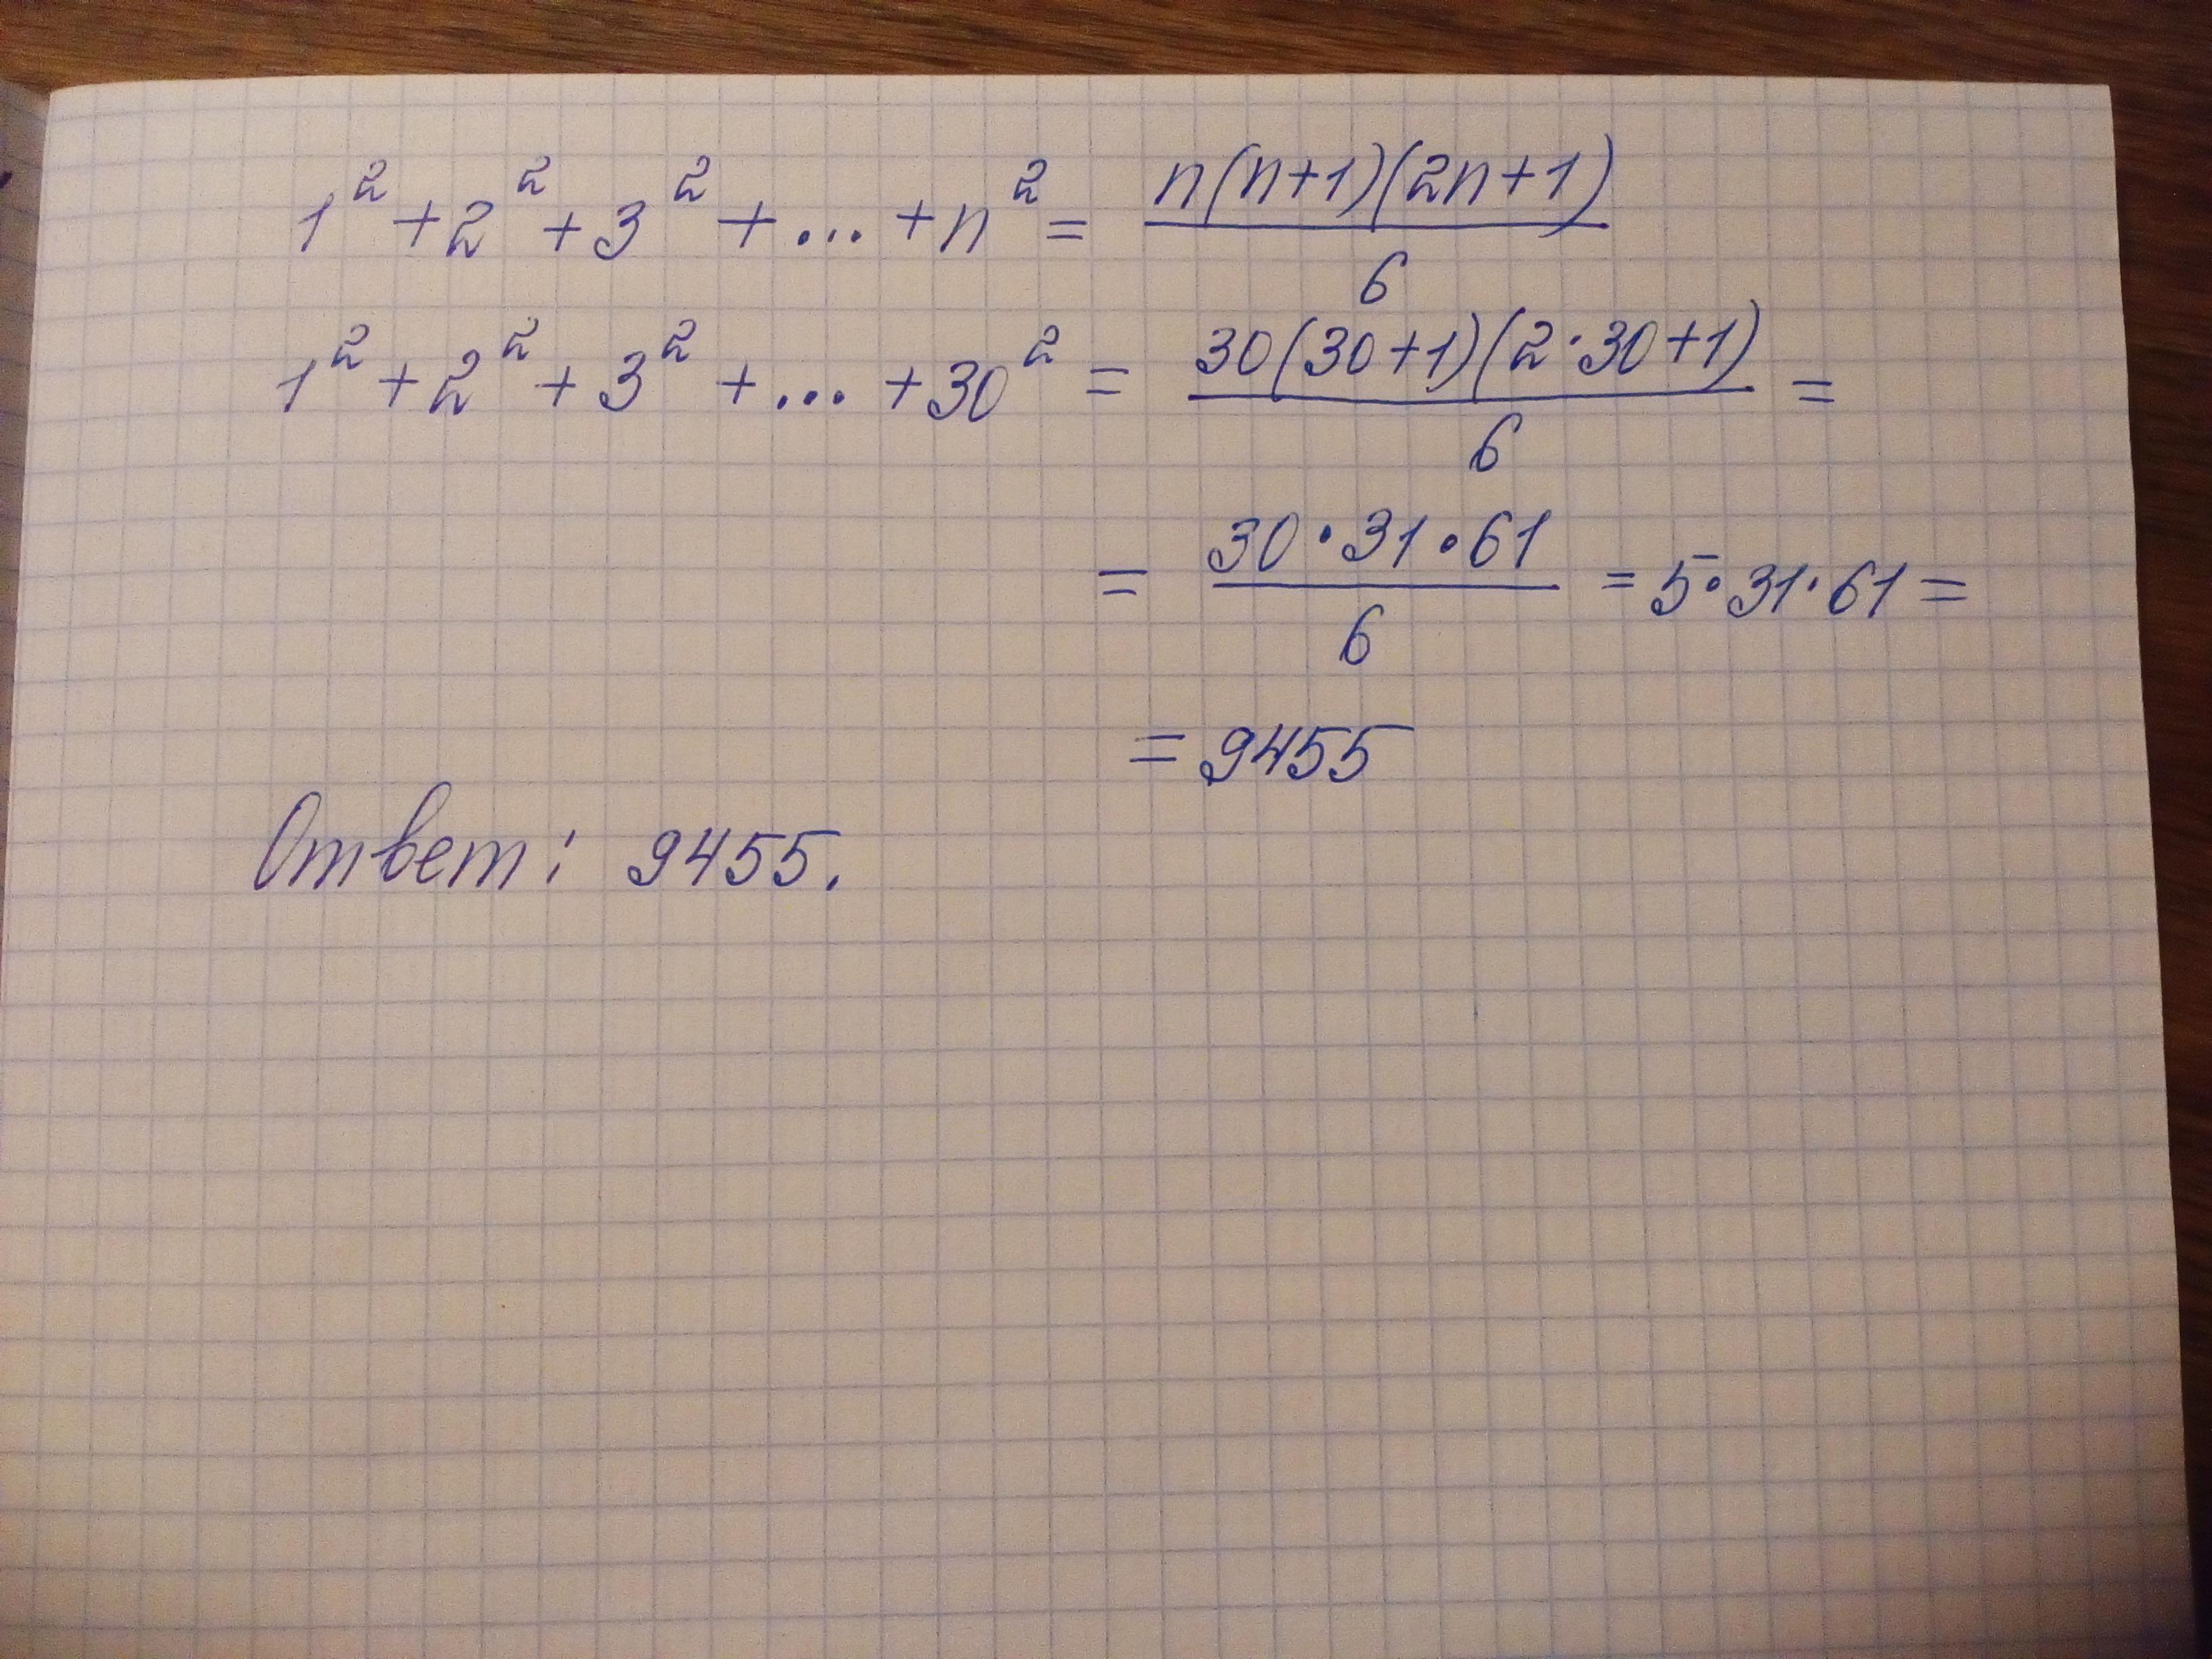 1² + 2² + 3² + ... + n² = n(n+1)(2n+1) / 6
1² + 2² + 3² + ... + 30² = 30(30+1)(2·30+1) / 6 =
= 30·31·61 / 6 = 5·31·61 =
= 9455
Ответ: 9455.